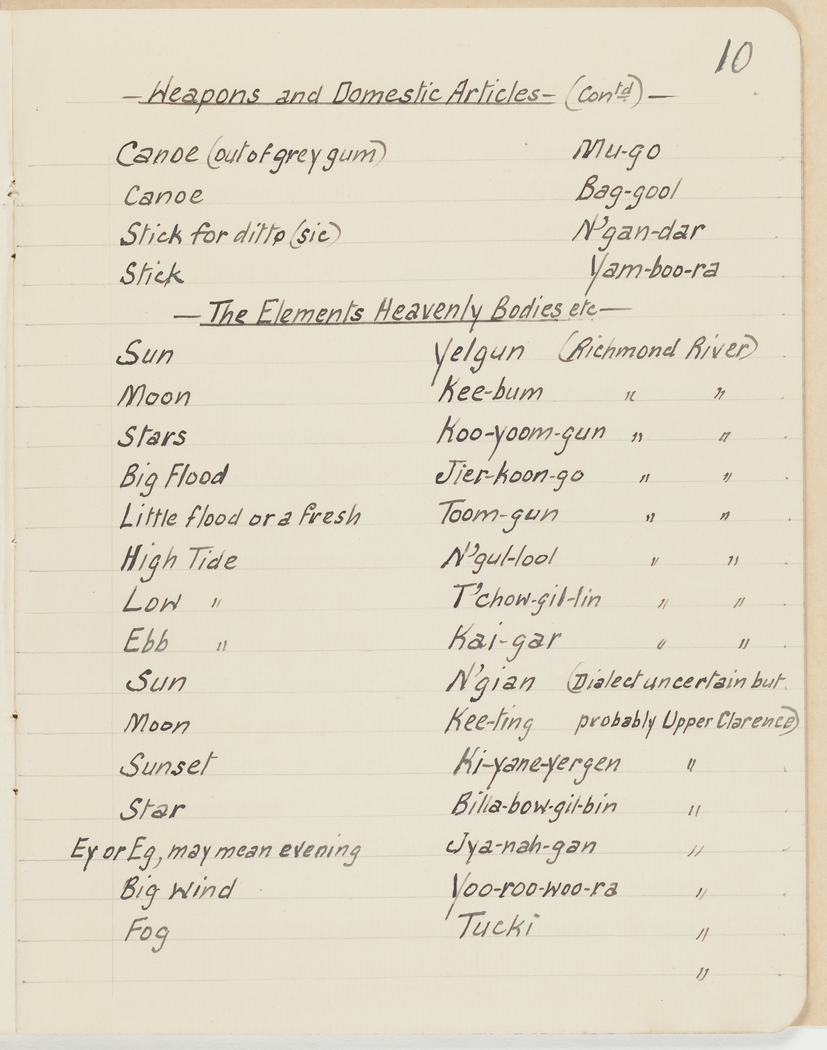 10
— Weapons and Domestic Articles – (Contd) —
Canoe (out of grey gum) Mu-go
Canoe Bag-gool
Stick for ditto (sic) N'gan-dar
Stick Yam-boo-ra
— The Elements Heavenly Bodies etc —
Sun Yelgun (Richmond River)
Moon Kee-bum " "
Stars Koo-yoom-gun " "
Big Flood Jier-koon-go " "
Little flood or a fresh Toom-gun " "
High Tide N'gul-lool " "
Low " T'chow-gil-lin " "
Ebb " Kai-gar " "
Sun N'gian (Dialect uncertain but
Moon Kee-ting probably Upper Clarence)
Sunset Ki-yane-yergen "
Star Billa-bow-gil-bin "
Ey or Eg, may mean evening Jya-nah-gan "
Big wind Yoo-roo-woo-ra "
Fog Tucki "
"